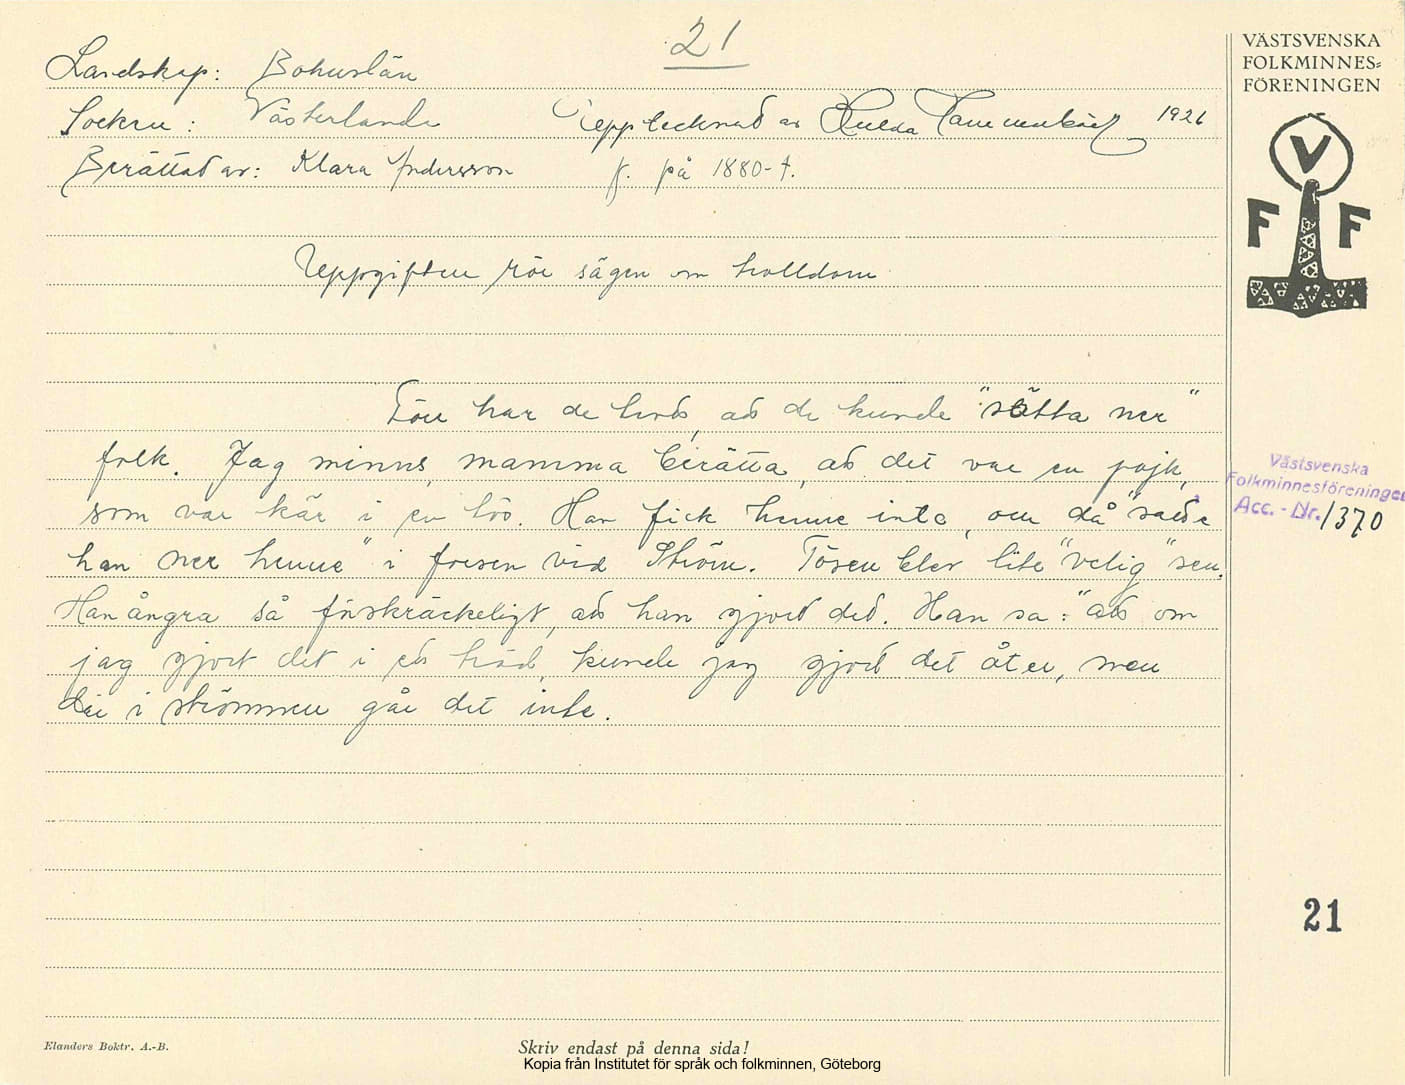 21
Landskap: Bohuslän
Socken: Västerlanda Upptecknad av Hulda Hammarbäck 1926
Berättad av: Klara Andersson f. på 1880-t.
Uppgiften rör sägen om trolldom
Förr har de trott, att de kunde "sätta ner"
folk. Jag minns, mamma berätta, att det var en pojk,
som var kär i en tös. Han fick henne inte, och då "satte
han ner henne" i forsen vid Ström. Tösen blev lite "velig" sen.
Han ångra så förskräckeligt, att han gjort det. Han sa: "att om
jag gjort det i ett träd, kunde jag gjort det åter, men
där i strömmen går det inte.
VÄSTSVENSKA
FOLKMINNES=
FÖRENINGEN
V
F F
Västsvenska
Folkminnesföreningen
Acc. - Nr. 1370
21
Elanders Boktr. A.-B.
Skriv endast på denna sida!
Kopia från Institutet för språk och folkminnen, Göteborg